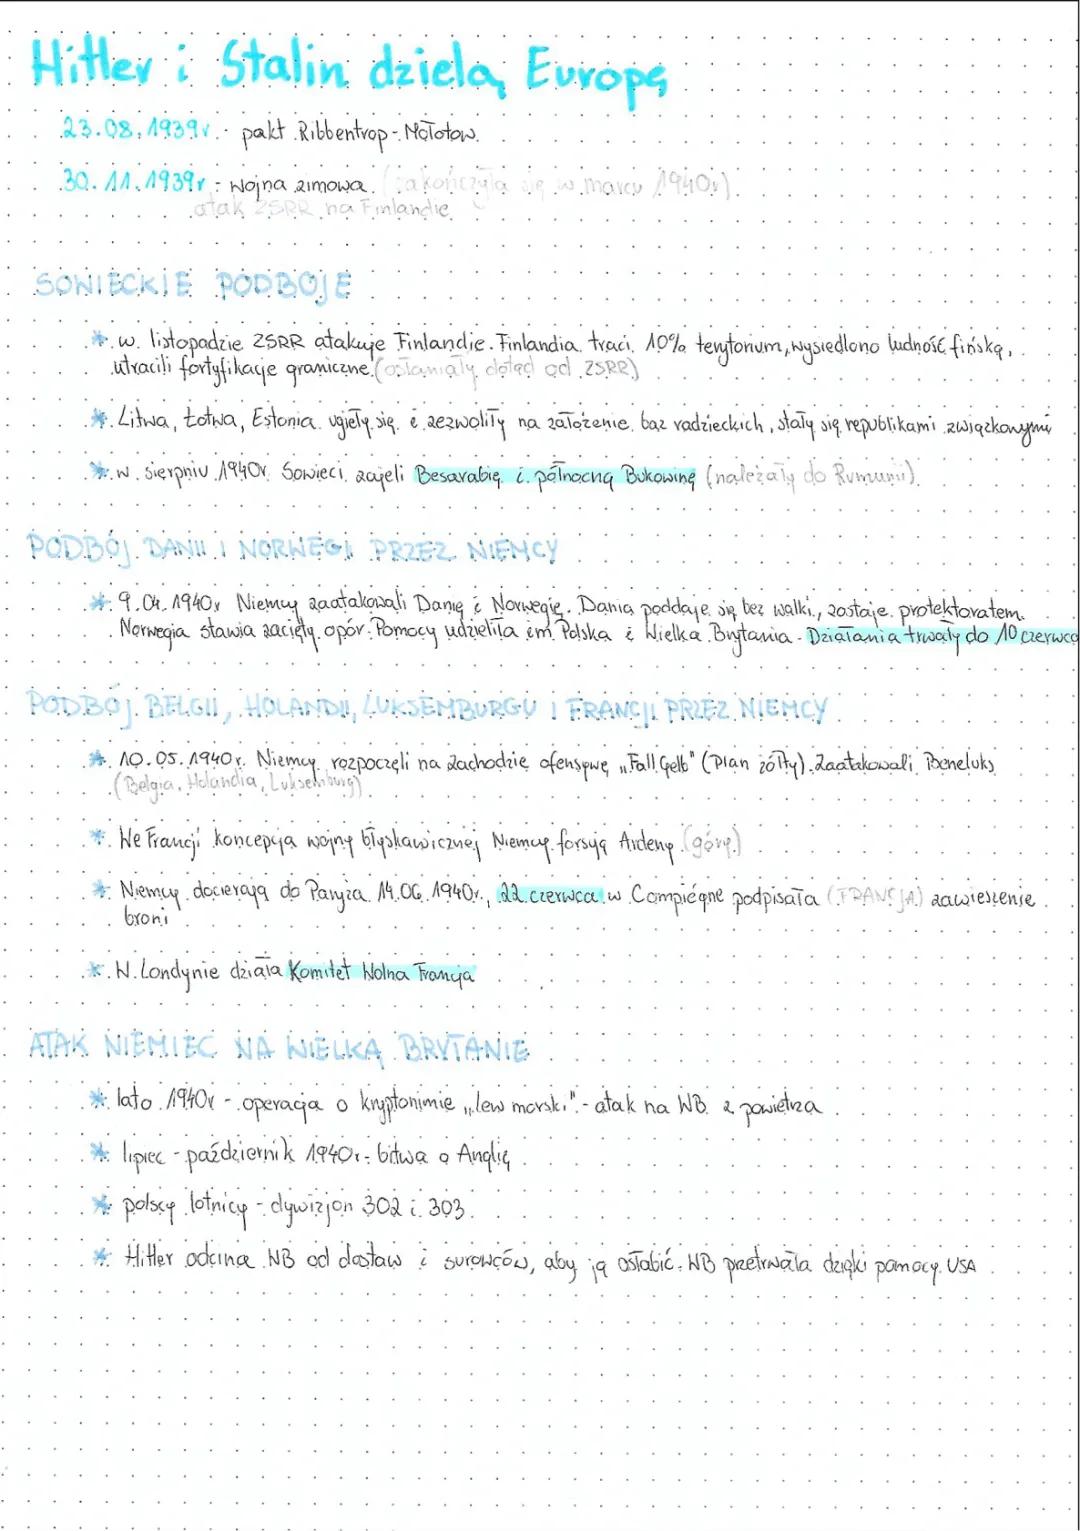 Hitler i Stalin dzielą Europę
23.08.1939r. - pakt Ribbentrop-Mołotow.
30.11.1939r - wojna zimowa. (zakończyła się w marcu 1940r)
atak ZSRR na Finlandie
SOWIECKIE PODBOJE
* w listopadzie ZSRR atakuje Finlandie. Finlandia traci 10% terytorium, wysiedlono ludność fińską,
utracili fortyfikacje graniczne (osłaniały dotąd od ZSRR)
* Litwa, Łotwa, Estonia ugięły się i zezwoliły na założenie baz radzieckich, stały się republikami związkowymi
* w sierpniu 1940r. Sowieci zajeli Besarabię i północną Bukowinę (należały do Rumunii)
PODBÓJ DANII I NORWEGII PRZEZ NIEMCY
* 9.04.1940r Niemcy zaatakowali Danię i Norwegię. Dania poddaje się bez walki, zostaje protektoratem.
Norwegia stawia zacięty opór. Pomocy udzieliła im Polska i Wielka Brytania. Działania trwały do 10 czerwca
PODBÓJ BELGII, HOLANDII, LUKSEMBURGU I FRANCJI PRZEZ NIEMCY
* 10.05.1940r. Niemcy rozpoczęli na zachodzie ofensywę „Fall Gelb" (Plan żółty). Zaatakowali Beneluks
(Belgia, Holandia, Luksemburg)
* We Francji koncepcja wojny błyskawicznej Niemcy forsują Ardeny (góry)
* Niemcy docierają do Paryża 14.06.1940r., 22 czerwca w Compiégne podpisała (FRANCJA) zawieszenie
broni
* W Londynie działa Komitet Wolna Francja
ATAK NIEMIEC NA WIELKĄ BRYTANIE
* lato 1940r - operacja o kryptonimie „lew morski" - atak na WB z powietrza
* lipiec - październik 1940r. - bitwa o Anglię
* polscy lotnicy - dywizjon 302 i 303
* Hitler odcina WB od dostaw i surowców, aby ją osłabić. WB przetrwała dzięki pomocy USA